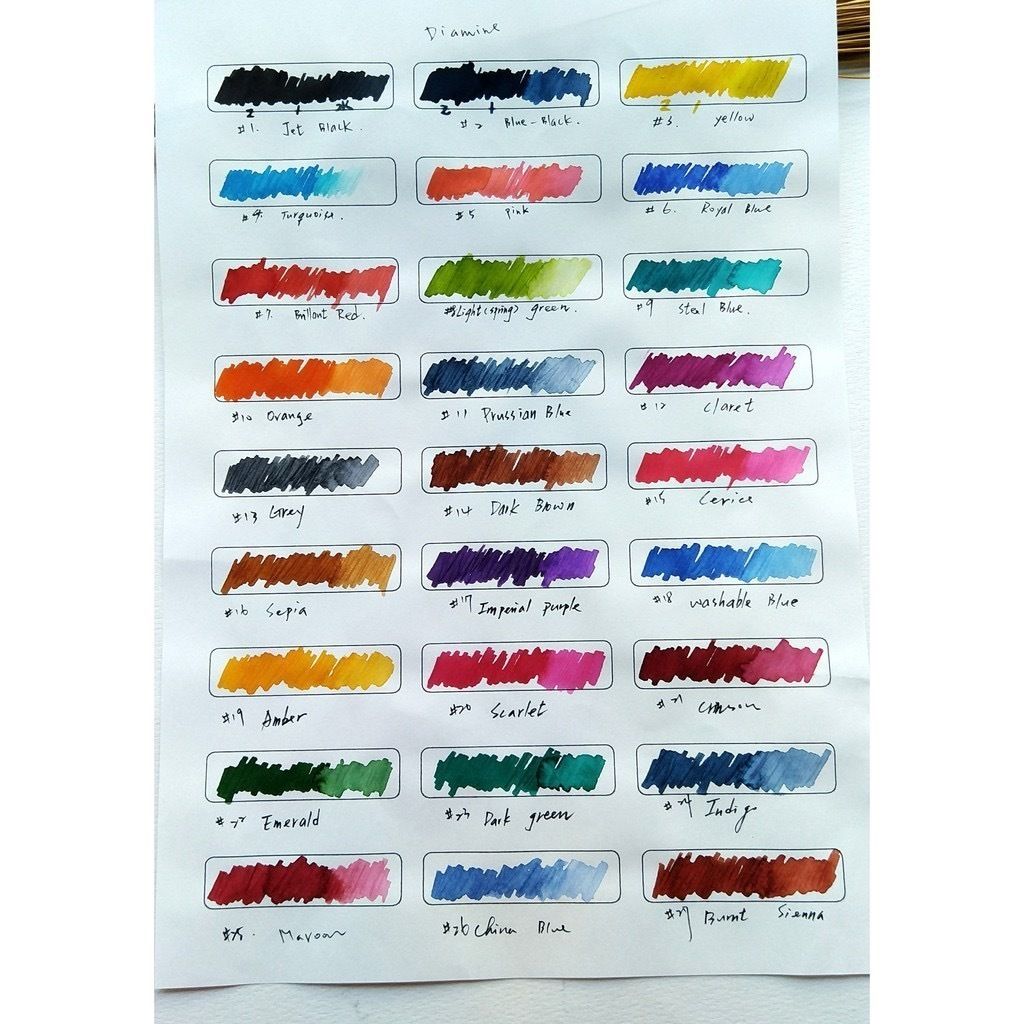 Diamine
2 1 2 1 2 1
#1. Jet Black. #2 Blue-Black. #3. yellow
#4. Turquoise. #5 pink #6. Royal Blue
#7. Brillant Red. #8 Light(spring) green. #9 Steal Blue.
#10 Orange #11 Prussian Blue #12 Claret
#13 Grey #14 Dark Brown #15 Cerice
#16 Sepia #17 Imperial purple #18 washable Blue
#19 Amber #20 Scarlet #21 Crimson
#22 Emerald #23 Dark green #24 Indigo
#25. Maroon #26 China Blue #27 Burnt Sienna